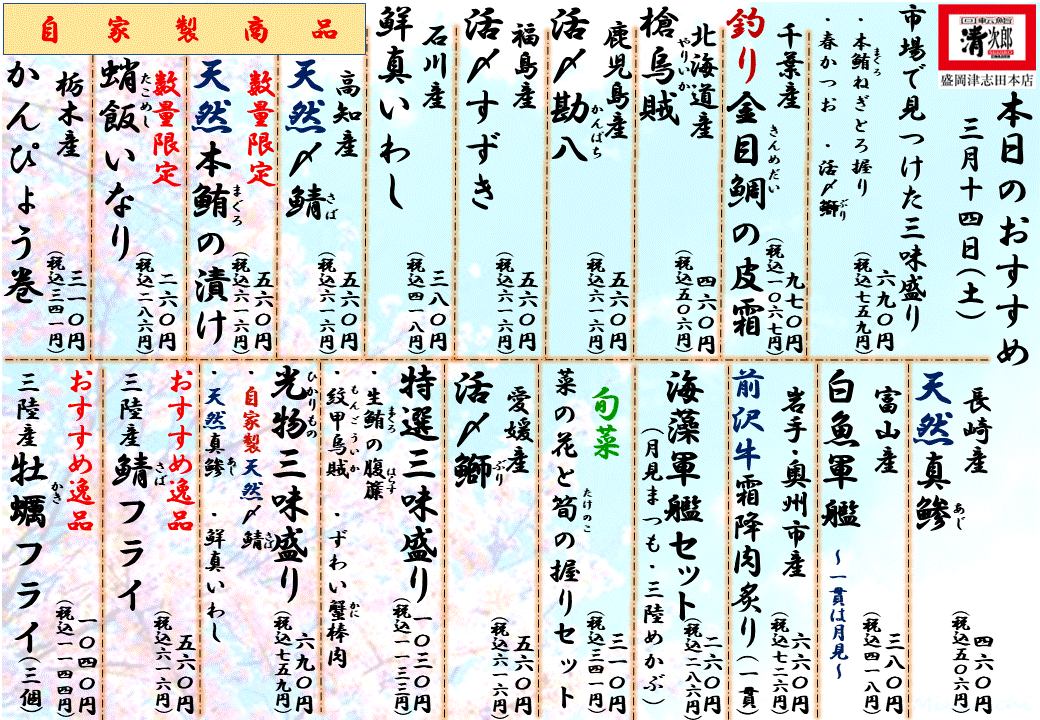 回転鮨
清次郎
SEIJIRO
盛岡津志田本店
本日のおすすめ
三月十四日(土)
市場で見つけた三味盛り
・本鮪ねぎとろ握り
まぐろ
・春かつお ・活〆鰤
ぶり
六九〇円
(税込七五九円)
千葉産
釣り金目鯛の皮霜
きんめだい
九七〇円
(税込一〇六七円)
北海道産
槍烏賊
やりいか
四六〇円
(税込五〇六円)
鹿児島産
活〆勘八
かんぱち
五六〇円
(税込六一六円)
福島産
活〆すずき
五六〇円
(税込六一六円)
石川産
鮮真いわし
三八〇円
(税込四一八円)
自家製商品
高知産
天然〆鯖
さば
五六〇円
(税込六一六円)
数量限定
天然本鮪の漬け
まぐろ
五六〇円
(税込六一六円)
数量限定
蛸飯いなり
たこめし
二六〇円
(税込二八六円)
栃木産
かんぴょう巻
三一〇円
(税込三四一円)
長崎産
天然真鯵
あじ
四六〇円
(税込五〇六円)
富山産
白魚軍艦
~一貫は月見~
三八〇円
(税込四一八円)
岩手・奥州市産
前沢牛霜降肉炙り(一貫)
六六〇円
(税込七二六円)
海藻軍艦セット
(月見まつも・三陸めかぶ)
二六〇円
(税込二八六円)
旬菜
菜の花と筍の握りセット
たけのこ
三一〇円
(税込三四一円)
愛媛産
活〆鰤
ぶり
五六〇円
(税込六一六円)
特選三味盛り
一〇三〇円
(税込一一三三円)
・生鮪の腹簾
まぐろ はらす
・紋甲烏賊 ・ずわい蟹棒肉
もんごういか かに
光物三味盛り
ひかりもの
六九〇円
(税込七五九円)
・自家製天然〆鯖
さば
・天然真鯵 ・鮮真いわし
あじ
おすすめ逸品
三陸産鯖フライ
さば
五六〇円
(税込六一六円)
おすすめ逸品
三陸産牡蠣フライ(三個)
かき
一〇四〇円
(税込一一四四円)